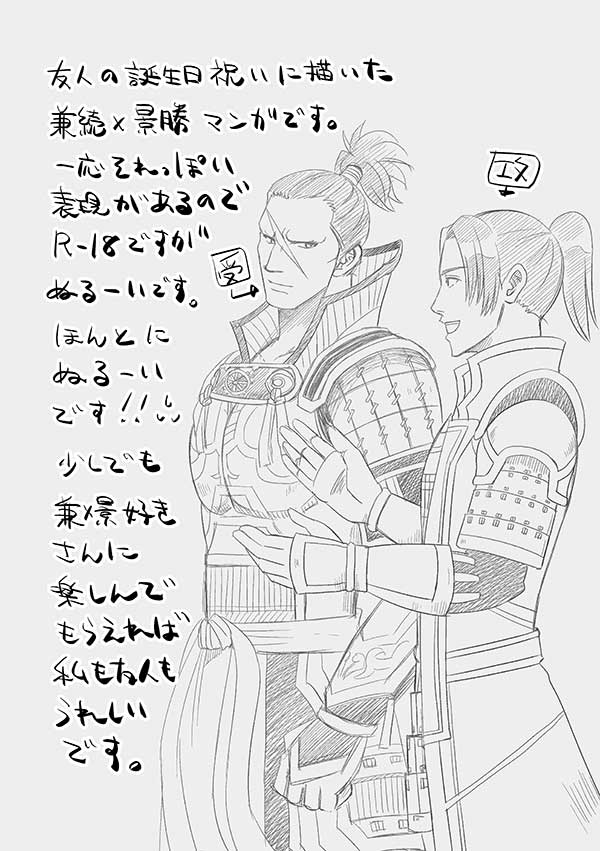 友人の誕生日祝いに描いた
兼続×景勝マンガです。
一応それっぽい
表現があるので
R-18ですが
ぬるーいです。
ほんとに
ぬるーい
です!!
少しでも
兼×景好き
さんに
楽しんで
もらえれば
私も友人も
うれしい
です。
受
攻